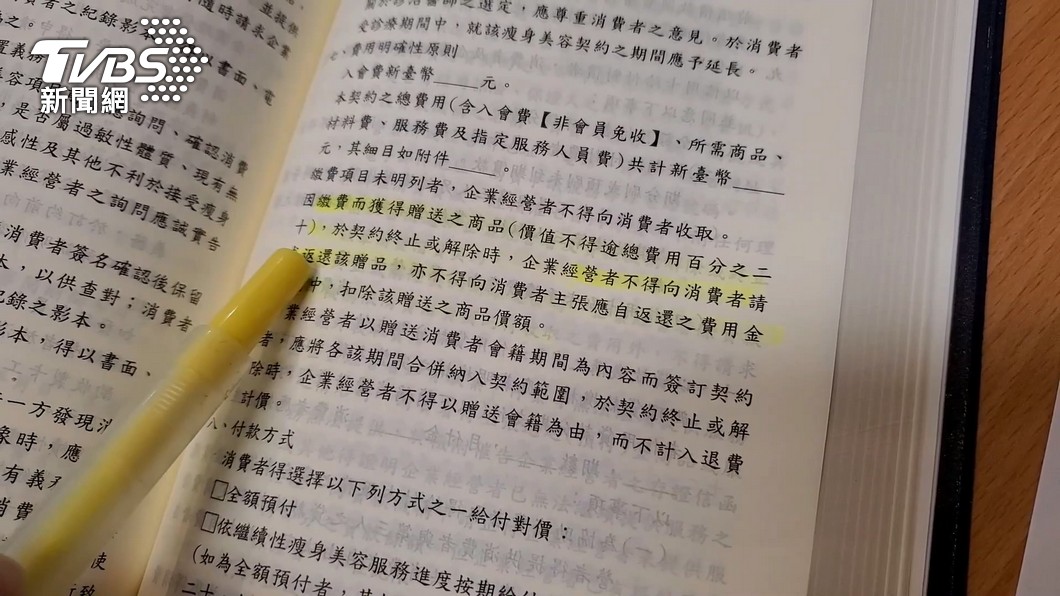 TVBS
新聞網
者之紀錄影本
隨時請求企業
以書面、電
置義務
美容項
詢問、確認消費
，是否屬過敏性體質、現有無
感性及其他不利於接受瘦身
業經營者之詢問應誠實告
消費者簽名確認後保留
本，以供查對；消費者
紀錄之影本。
影本，得以書面、
一方發現消
象時，應
有義
消費
使
之選定，應尊重消費者之意見。於消費者
受診療期間中，就該瘦身美容契約之期間應予延長。
七、費用明確性原則
入會費新臺幣____元。
本契約之總費用(含入會費【非會員免收】、所需商品、
材料費、服務費及指定服務人員費)共計新臺幣____
元，其細目如附件____。
繳費項目未明列者，企業經營者不得向消費者收取。
因繳費而獲得贈送之商品(價值不得逾總費用百分之二
十)，於契約終止或解除時，企業經營者不得向消費者請
返還該贈品，亦不得向消費者主張應自返還之費用金
中，扣除該贈送之商品價額。
業經營者以贈送消費者會籍期間為內容而簽訂契約
者，應將各該期間合併納入契約範圍，於契約終止或解
除時，企業經營者不得以贈送會籍為由，而不計入退費
計價。
八、付款方式
消費者得選擇以下列方式之一給付對價：
□全額預付
□依繼續性瘦身美容服務進度按期給付
(如為全額預付者，其
二十